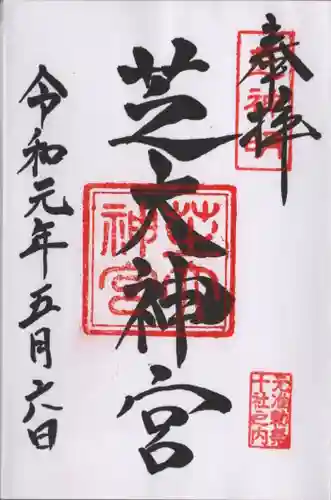 奉拝
芝大神宮
令和元年五月六日
芝大
神宮
元准勅祭
十社之内